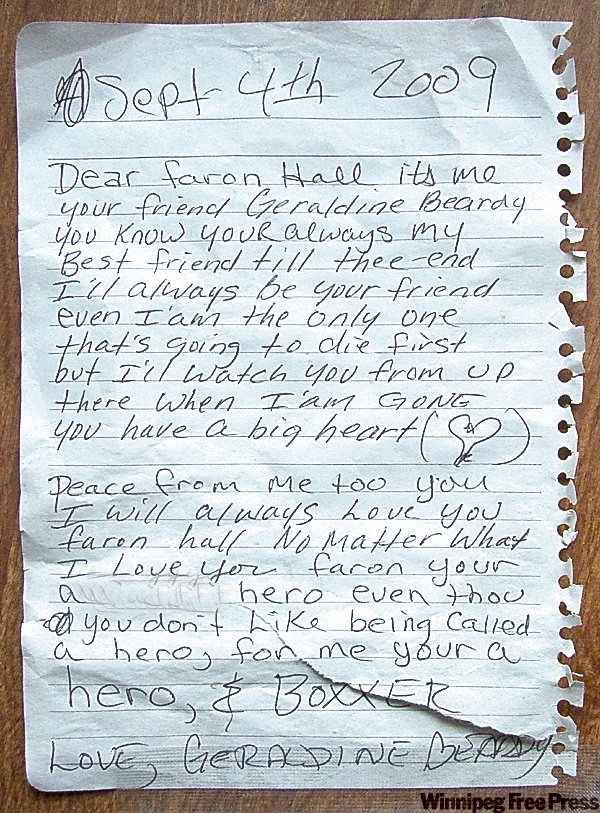 Sept 4th 2009
Dear faron Hall its me
your friend Geraldine Beardy
you know your always my
Best friend till thee-end
I'll always be your friend
even I'am the only one
that's going to die first
but I'll watch you from up
there when I'am GONE
you have a big heart ( )
peace from me too you
I will always Love you
faron hall No Matter What
I Love you faron your
a hero even thou
you don't Like being Called
a hero, for me your a
hero, & BOXXER
LOVE, GERALDINE BEARDY
Winnipeg Free Press